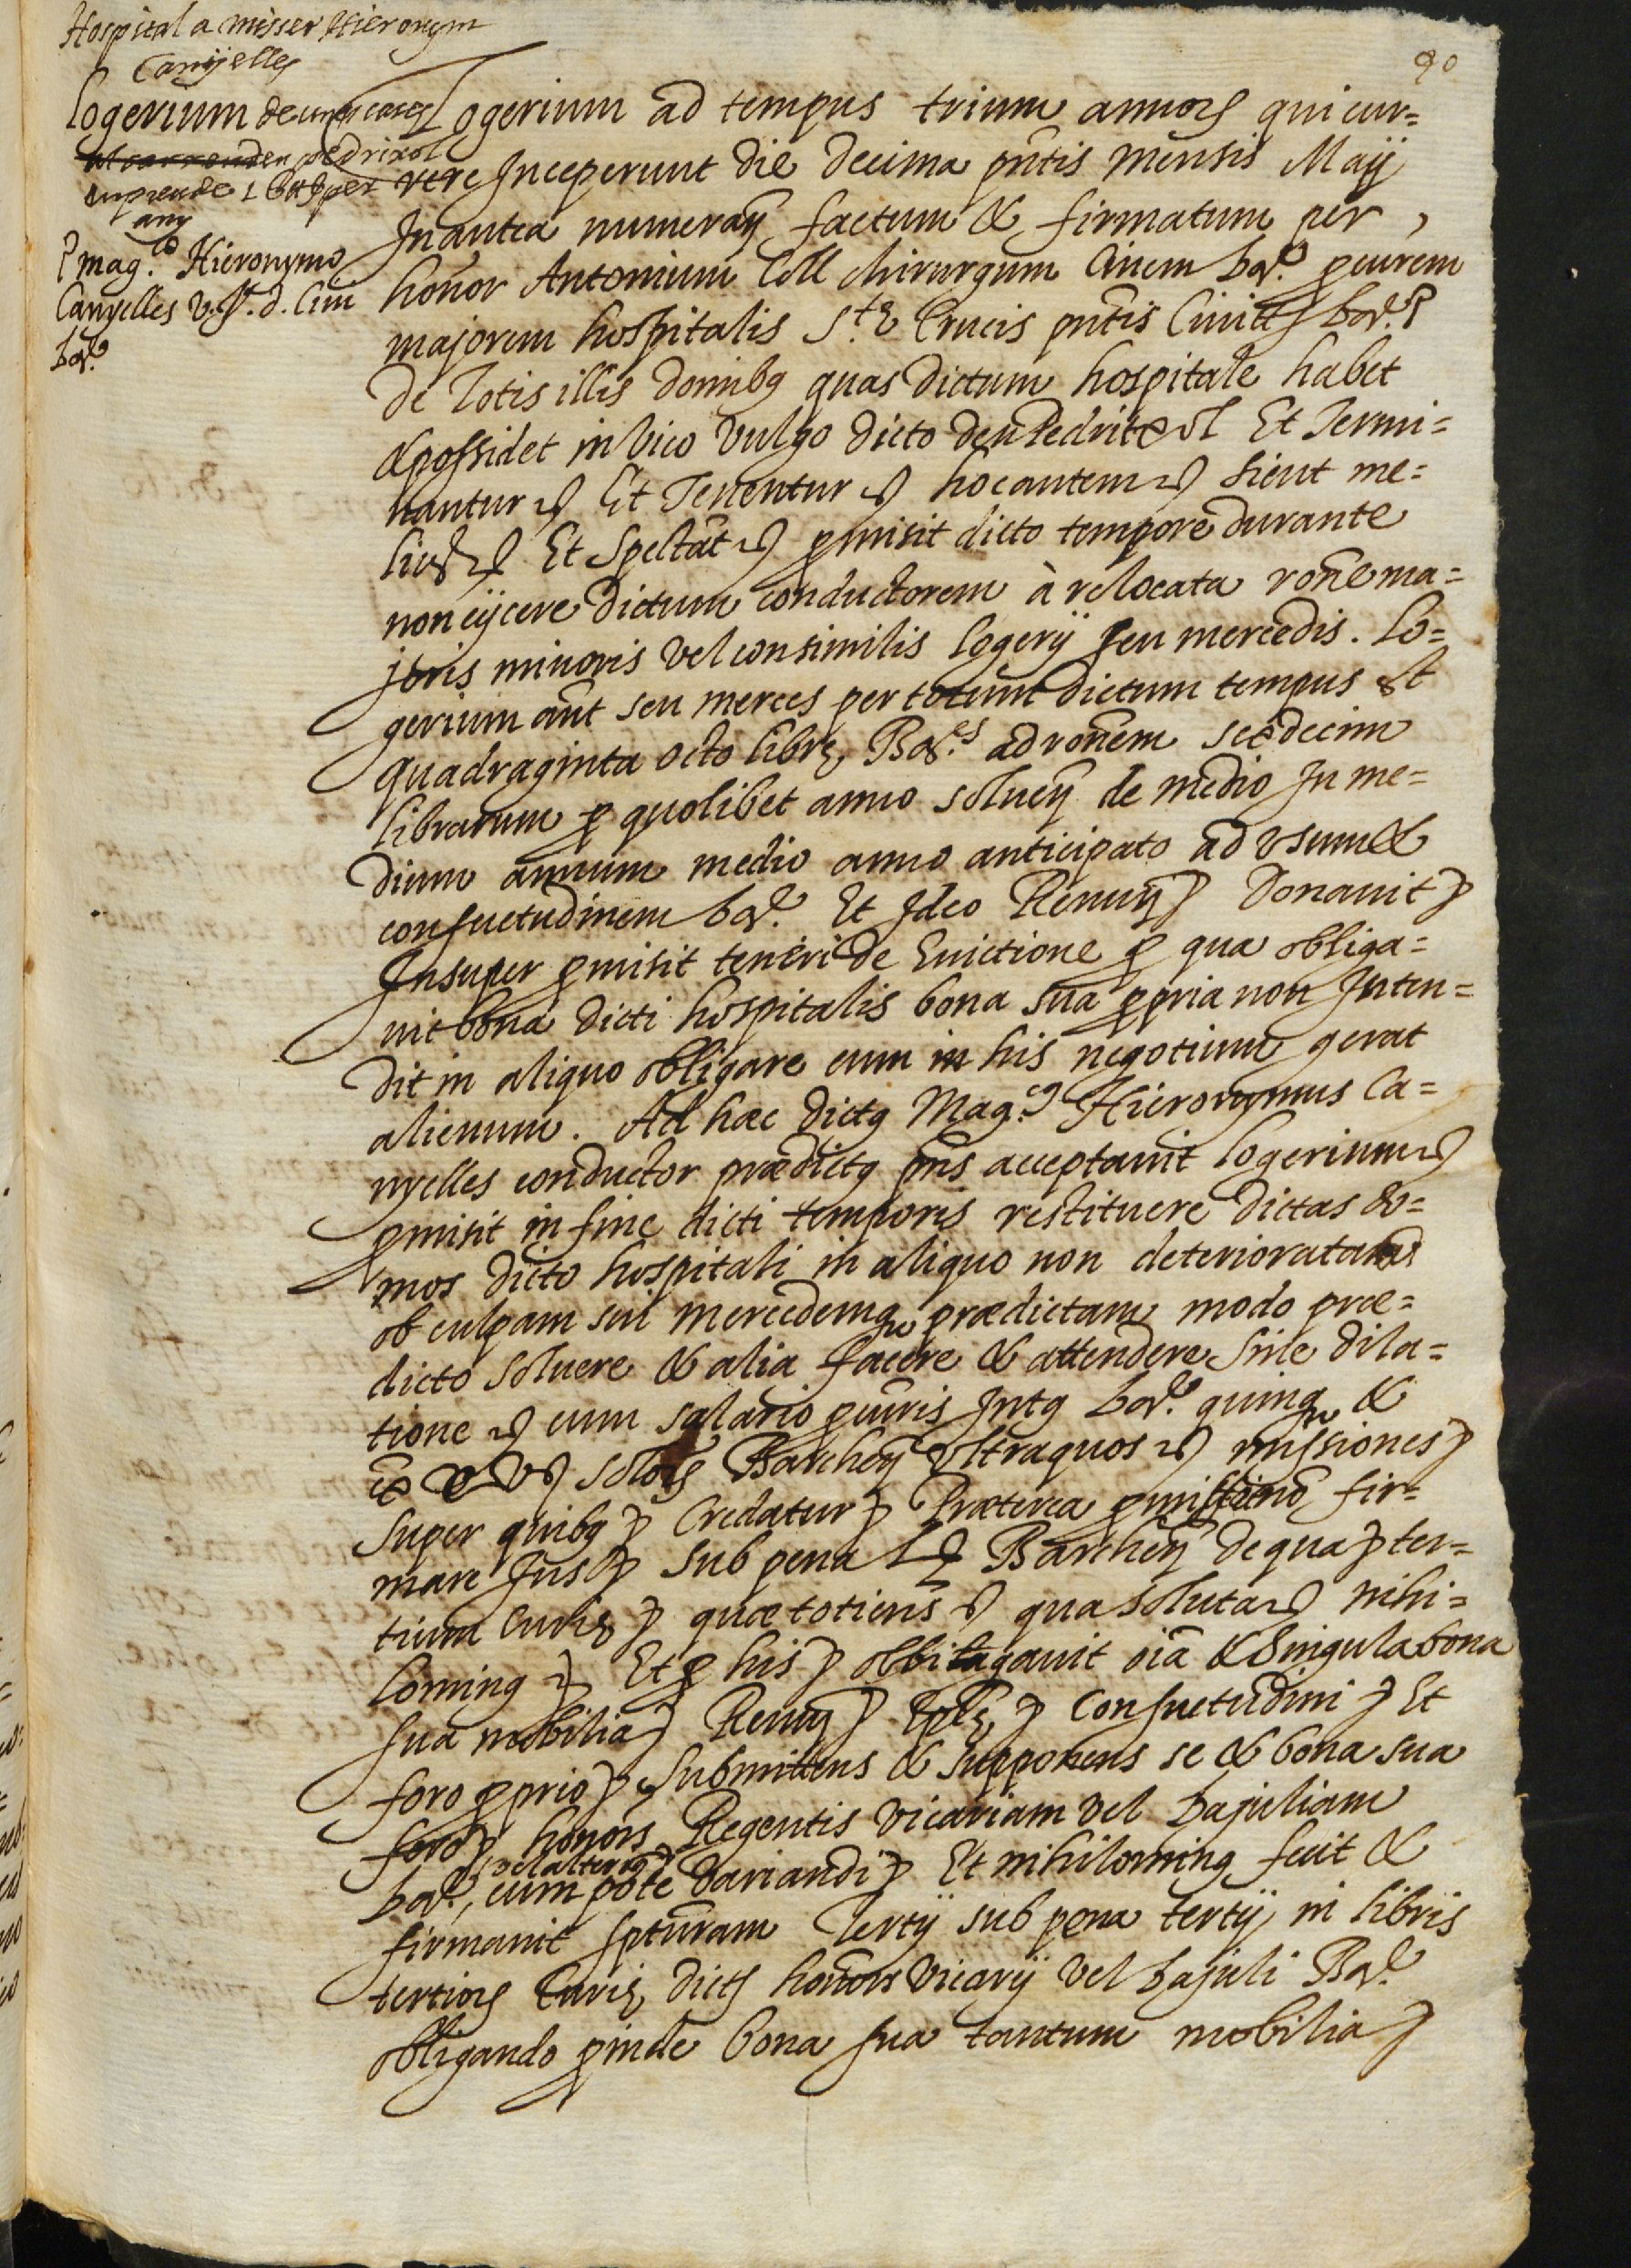 Hospital a misser Hieronym
Canyelles
90
Logerium de unes cases
al carrer den pedrixol
any
P mag.co Hieronymo
Canyelles V. J. d. Ciui
bar.e
Logerium ad tempus trium annorꝫ qui cur=
rere Inceperunt die decima pn̄tis mensis Maij
Inantea numeran̄ factum & firmatum per
honor Antonium Coll chirurgum Ciuem bar.e ꝓcurem
majorem hospitalis S.te Crucis pn̄tis Ciuitꝭ bar.e
de Totis illis domibꝰ quas dictum hospitale habet
& possidet in vico vulgo dicto den Pedritxol Et Termi=
nantur ꝛc Et Tenentur ꝛc hoc autem ꝛc sicut me=
lius ꝛc Et Spectāt ꝛc ꝓmisit dicto tempore durante
non eijcere dictum conductorem à relocata rōne ma=
joris minoris vel consimilis logerij seu mercedis. Lo=
gerium aūt seu merces per totum dictum tempus est
quadraginta octo librę Bar.es ad rōnem sexdecim
librarum ꝓ quolibet anno soluen̄ de medio In me=
dium annum medio anno anticipato ad vsum &
consuetudinem bar.e Et Ideo Renun̄ ꝛc Donauit ꝛc
Insuper ꝓmisit teneri de Euictione ꝓ qua obliga=
uit bona dicti hospitalis bona sua ꝓpria non Inten=
dit in aliquo obligare cum in his negotium gerat
alienum. Ad hæc dictꝰ Mag.cus Hieronymus Ca=
nyelles conductor prædictꝰ pn̄s acceptauit logerium ꝛc
ꝓmisit in fine dicti temporis restituere dictas do=
mos dicto hospitali in aliquo non deterioratas
ob culpam sui mercedemqꝫ prædictam modo præ=
dicto soluere & alia facere & attendere sine dila=
tione ꝛc cum salario ꝓcuris Intꝰ bar.e quinqꝫ &
solorꝫ Barchen̄ vltra quos ꝛc missiones ꝛc
super quibꝰ ꝛc Credatur ꝛc Præterea ꝓmissione fir=
mare Jus ꝛc sub pena Barchen̄ de qua ꝛc ter=
tium Curię ꝛc quæ totiens ꝛc qua soluta ꝛc nihi=
lominꝰ ꝛc Et ꝓ his ꝛc obligauit oīa & Singula bona
sua mobilia ꝛc Renun̄ ꝛc ꝛc Consuetudini ꝛc Et
foro ꝓprio ꝛc Submittens & supponens se & bona sua
foro ꝛc honors Regentis vicariam vel bajuliam
bar.e, vel alteriꝰ ꝛc cum pōte variandi ꝛc Et nihilominꝰ fecit &
firmauit sp̄turam Tertij sub pena tertij, in libris
tertiorꝫ Curię dictꝭ honors vicarij vel bajuli Bar.e
obligando ꝓinde bona sua tantum mobilia ꝛc